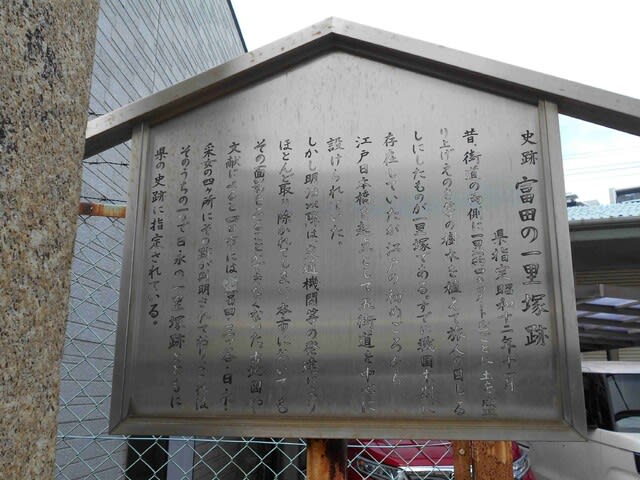 史跡 富田の一里塚跡
県指定 昭和十二年十二月
昔、街道の両側に一里ごとに土を盛
り上げその上に 樹木を植えて旅人の目じる
しにしたものが一里塚である。すでに戦国時代に
存在していたが江戸の初めごろから
江戸日本橋を起点として各街道を中心に
設けられていた。
しかし明治以降は交通機関等の発達により
ほとんど取り除かれてしまい本市においても
その面影をしのぶことができなくなった。古地図や
文献によると四日市には、富田・三ッ谷・日永・
采女の四ヶ所にその跡が証明されておりここは
そのうちの一つで日永の一里塚跡とともに
県の史跡に指定されている。